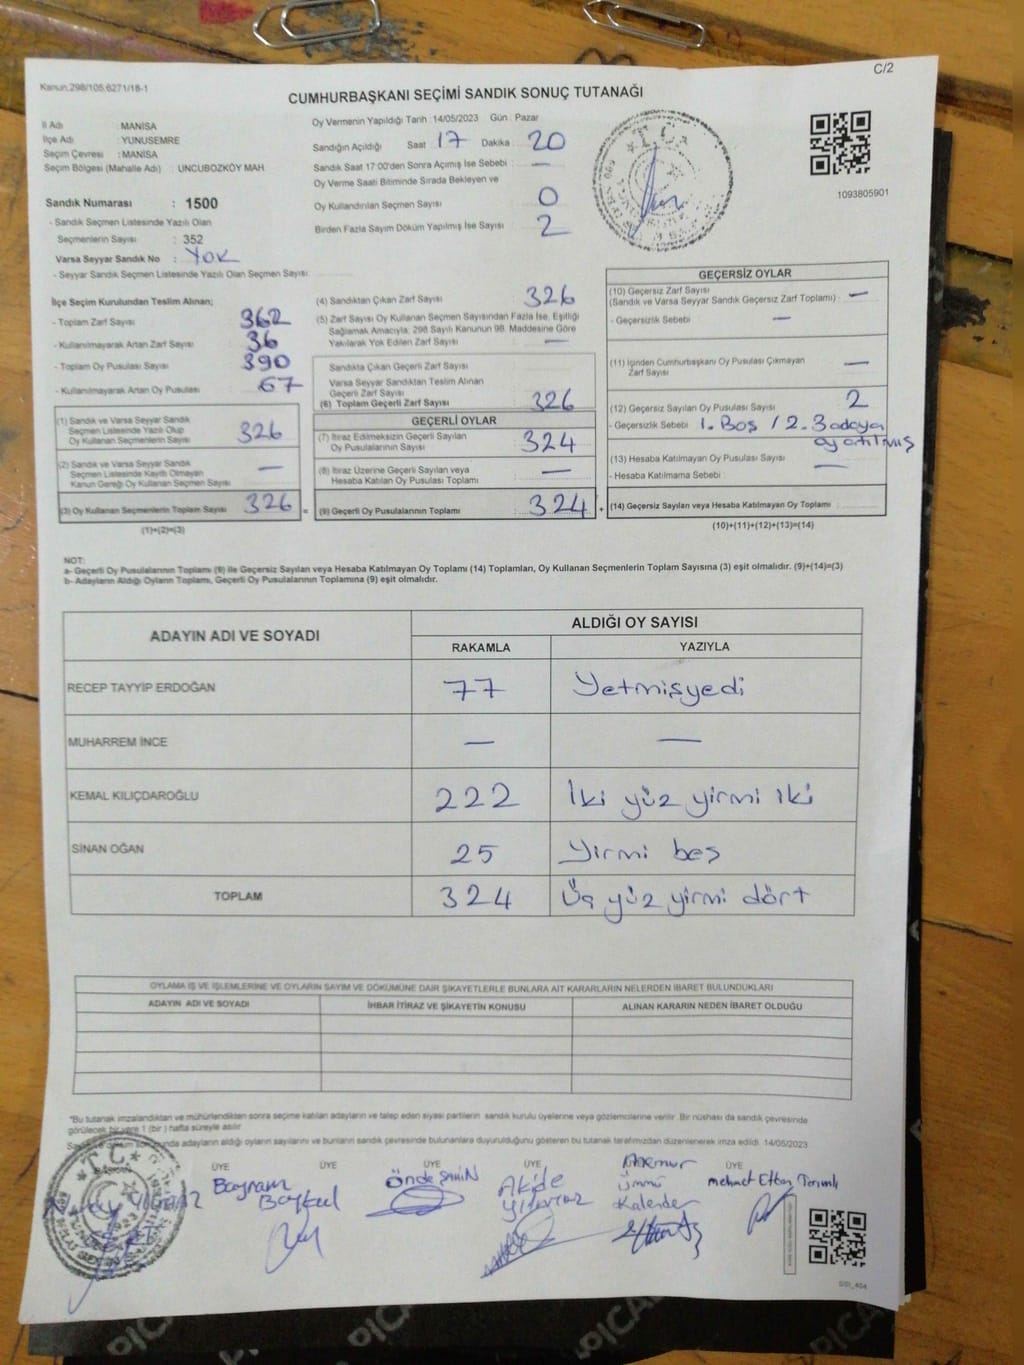 C/2
Kanun.298/105,6271/18-1
CUMHURBAŞKANI SEÇİMİ SANDIK SONUÇ TUTANAĞI
İl Adı : MANİSA
İlçe Adı : YUNUSEMRE
Seçim Çevresi : MANİSA
Seçim Bölgesi (Mahalle Adı) : UNCUBOZKÖY MAH
Sandık Numarası : 1500
- Sandık Seçmen Listesinde Yazılı Olan
Seçmenlerin Sayısı : 352
Varsa Seyyar Sandık No : YOK
- Seyyar Sandık Seçmen Listesinde Yazılı Olan Seçmen Sayısı:
Oy Vermenin Yapıldığı Tarih :14/05/2023 Gün : Pazar
Sandığın Açıldığı Saat : 17 Dakika : 20
Sandık Saat 17:00'den Sonra Açımış İse Sebebi : —
Oy Verme Saati Bitiminde Sırada Bekleyen ve
Oy Kullandırılan Seçmen Sayısı : 0
Birden Fazla Sayım Döküm Yapılmış İse Sayısı : 2
T.C.
1093805901
İlçe Seçim Kurulundan Teslim Alınan;
- Toplam Zarf Sayısı : 362
- Kullanılmayarak Artan Zarf Sayısı : 36
- Toplam Oy Pusulası Sayısı : 390
- Kullanılmayarak Artan Oy Pusulası : 67
(1) Sandık ve Varsa Seyyar Sandık
Seçmen Listesinde Yazılı Olup
Oy Kullanan Seçmenlerin Sayısı : 326
(2) Sandık ve Varsa Seyyar Sandık
Seçmen Listesinde Kayıtlı Olmayan
Kanun Gereği Oy Kullanan Seçmen Sayısı : —
(3) Oy Kullanan Seçmenlerin Toplam Sayısı : 326
(1)+(2)=(3)
(4) Sandıktan Çıkan Zarf Sayısı : 326
(5) Zarf Sayısı Oy Kullanan Seçmen Sayısından Fazla İse, Eşitliği
Sağlamak Amacıyla, 298 Sayılı Kanunun 98. Maddesine Göre
Yakılarak Yok Edilen Zarf Sayısı : —
Sandıkta Çıkan Geçerli Zarf Sayısı
Varsa Seyyar Sandıktan Teslim Alınan
Geçerli Zarf Sayısı
(6) Toplam Geçerli Zarf Sayısı : 326
GEÇERLİ OYLAR
(7) İtiraz Edilmeksizin Geçerli Sayılan
Oy Pusulalarının Sayısı : 324
(8) İtiraz Üzerine Geçerli Sayılan veya
Hesaba Katılan Oy Pusulası Toplamı : —
(9) Geçerli Oy Pusulalarının Toplamı : 324
=
+
GEÇERSİZ OYLAR
(10) Geçersiz Zarf Sayısı
(Sandık ve Varsa Seyyar Sandık Geçersiz Zarf Toplamı) : —
- Geçersizlik Sebebi : —
(11) İçinden Cumhurbaşkanı Oy Pusulası Çıkmayan
Zarf Sayısı : —
(12) Geçersiz Sayılan Oy Pusulası Sayısı : 2
- Geçersizlik Sebebi : 1. Boş / 2. 3 adaya
oy atılmış
(13) Hesaba Katılmayan Oy Pusulası Sayısı : —
- Hesaba Katılmama Sebebi :
(14) Geçersiz Sayılan veya Hesaba Katılmayan Oy Toplamı :
(10)+(11)+(12)+(13)=(14)
NOT:
a- Geçerli Oy Pusulalarının Toplamı (9) ile Geçersiz Sayılan veya Hesaba Katılmayan Oy Toplamı (14) Toplamları, Oy Kullanan Seçmenlerin Toplam Sayısına (3) eşit olmalıdır. (9)+(14)=(3)
b- Adayların Aldığı Oyların Toplamı, Geçerli Oy Pusulalarının Toplamına (9) eşit olmalıdır.
ADAYIN ADI VE SOYADI
ALDIĞI OY SAYISI
RAKAMLA YAZIYLA
RECEP TAYYİP ERDOĞAN 77 Yetmişyedi
MUHARREM İNCE — —
KEMAL KILIÇDAROĞLU 222 İki yüz yirmi iki
SİNAN OĞAN 25 Yirmi beş
TOPLAM 324 Üç yüz yirmi dört
OYLAMA İŞ VE İŞLEMLERİNE VE OYLARIN SAYIM VE DÖKÜMÜNE DAİR ŞİKAYETLERLE BUNLARA AİT KARARLARIN NELERDEN İBARET BULUNDUKLARI
ADAYIN ADI VE SOYADI İHBAR İTİRAZ VE ŞİKAYETİN KONUSU ALINAN KARARIN NEDEN İBARET OLDUĞU
*Bu tutanak imzalandıktan ve mühürlendikten sonra seçime katılan adayların ve talep eden siyasi partilerin sandık kurulu üyelerine veya gözlemcilerine verilir. Bir nüshası da sandık çevresinde
görülecek bir yere 1 (bir ) hafta süreyle asılır
adayların aldığı oyların sayılarını ve bunların sandık çevresinde bulunanlara duyurulduğunu gösteren bu tutanak tarafımızdan düzenlenerek imza edildi. 14/05/2023
ÜYE ÜYE ÜYE ÜYE ÜYE
T.C.
Bayram
Baykul
Önde ŞAHİN
Akide
Yılmaz
Ümmü
Kalender
mehmet
SSİ_404